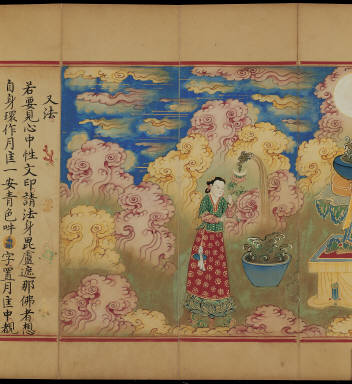 又法
若要見心中性文印請法身毘盧遮那佛者想
自身環作月𠥶一安青色吽字置月𠥶中觀